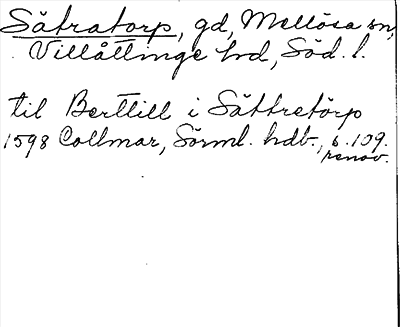 Sätratorp, gd, Mellösa sn,
Villåttinge hd, Söd. l.
til Berttill i Sättretörp
1598 Collmar, Sörml. hdb., s. 109.
renov.